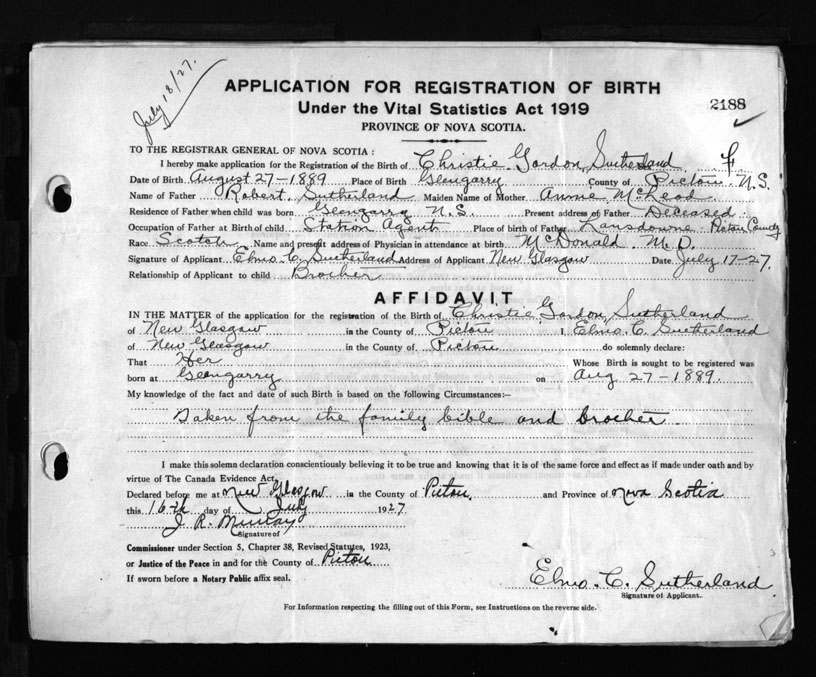 July 18/27.
APPLICATION FOR REGISTRATION OF BIRTH
Under the Vital Statistics Act 1919
2188
PROVINCE OF NOVA SCOTIA.
TO THE REGISTRAR GENERAL OF NOVA SCOTIA :
I hereby make application for the Registration of the Birth of Christie Gordon Sutherland f.
Date of Birth August 27-1889 Place of Birth Glengarry County of Pictou N.S.
Name of Father Robert Sutherland Maiden Name of Mother Annie McLeod
Residence of Father when child was born Glengarry N.S. Present address of Father Deceased
Occupation of Father at Birth of child Station Agent Place of birth of Father Lansdowne Pictou County
Race Scotch Name and present address of Physician in attendance at birth McDonald M.D.
Signature of Applicant Elmo. C. Sutherland Address of Applicant New Glasgow Date July 17-27.
Relationship of Applicant to child Brother
AFFIDAVIT
IN THE MATTER of the application for the registration of the Birth of Christie Gordon Sutherland
of New Glasgow in the County of Pictou I Elmo. C. Sutherland
of New Glasgow in the County of Pictou do solemnly declare:
That Her Whose Birth is sought to be registered was
born at Glengarry on Aug 27-1889.
My knowledge of the fact and date of such Birth is based on the following Circumstances:—
Taken from the family bible and brother.
I make this solemn declaration conscientiously believing it to be true and knowing that it is of the same force and effect as if made under oath and by
virtue of The Canada Evidence Act.
Declared before me at New Glasgow in the County of Pictou, and Province of Nova Scotia
this 16th day of July 1927
J. R. Murray
Signature of
Commissioner under Section 5, Chapter 38, Revised Statutes, 1923,
or Justice of the Peace in and for the County of Pictou
If sworn before a Notary Public affix seal.
Elmo. C. Sutherland
Signature of Applicant.
For Information respecting the filling out of this Form, see Instructions on the reverse side.